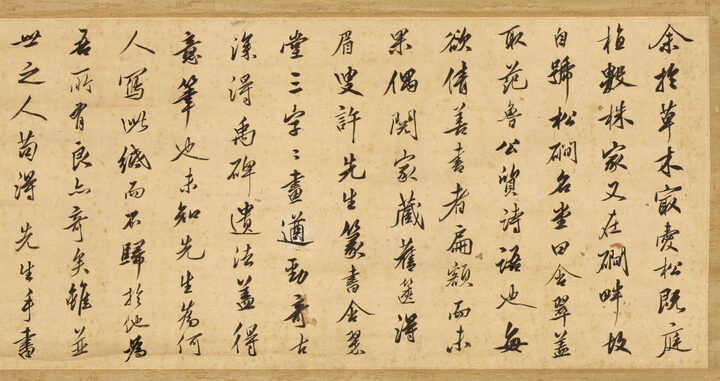 余於草木最愛松既庭
植數株家又在磵畔故
自號松磵名堂曰含翠蓋
取范魯公質詩語也每
欲倩善書者扁額而未
果偶閱家藏舊篋得
眉叟許先生篆書含翠
堂三字〻畫遒勁奇古
深得禹碑遺法蓋得
意筆也未知先生為何
人寫此緘而不歸於他為
吾所有良亦奇矣雖並
世之人苟得先生手書